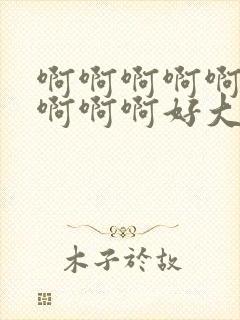 啊啊啊啊啊
啊啊啊好大
木子於故